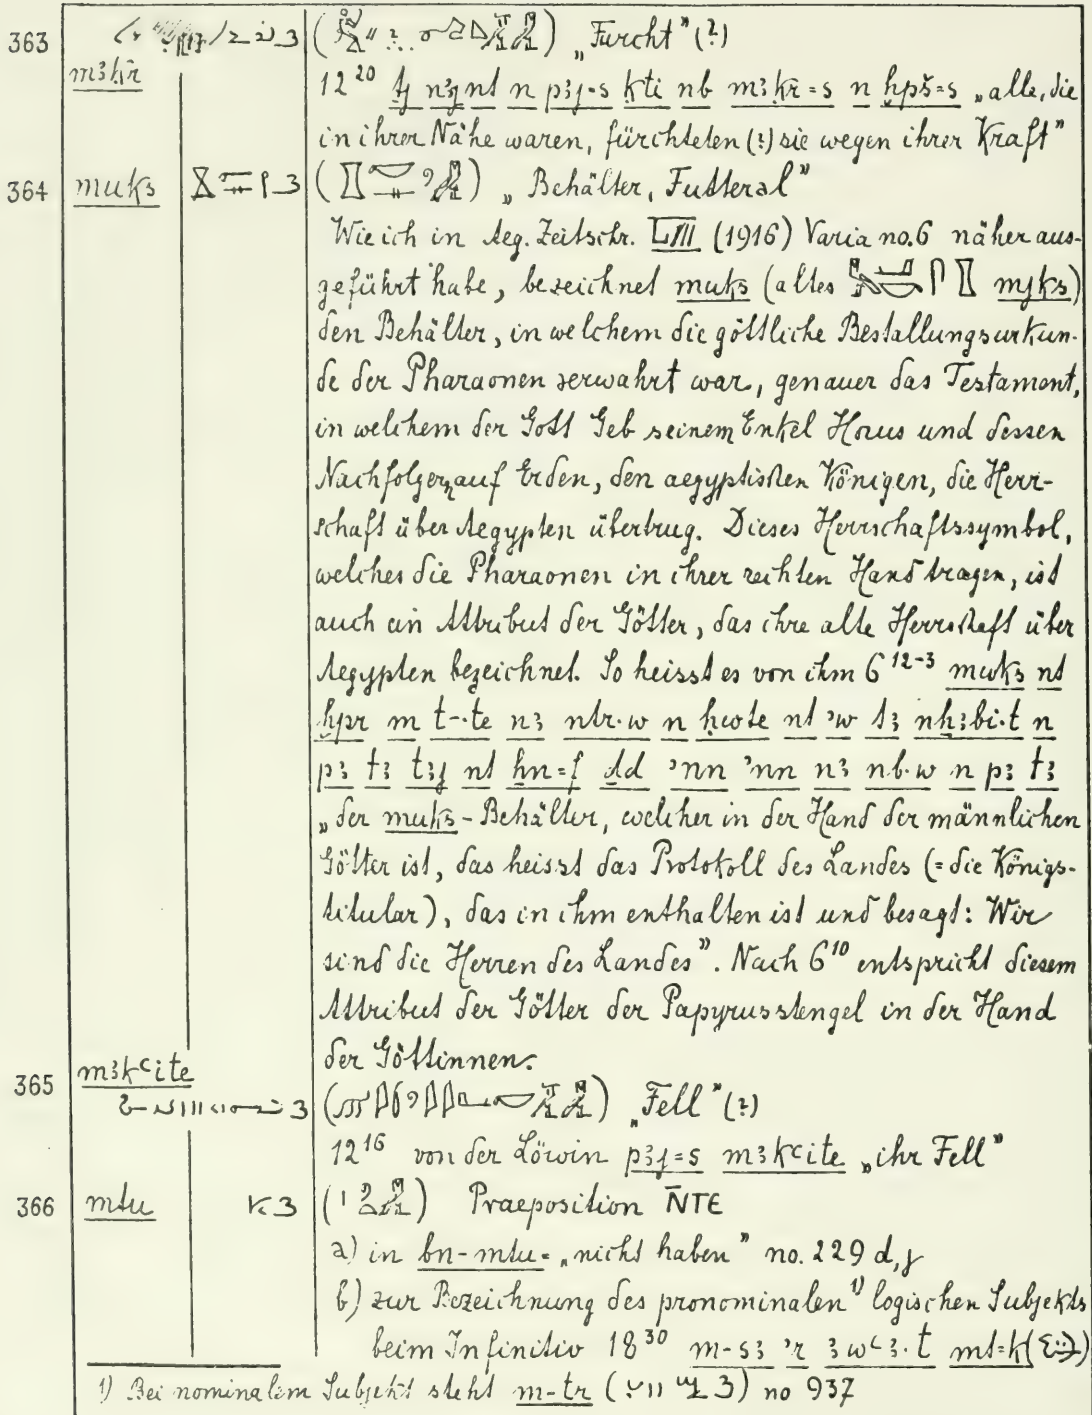 363 „Furcht” (?)
m3kr 12²⁰ n p3j=s kti nb m3kr=s n ḫpš=s „alle, die
in ihrer Nähe waren, fürchteten (?) sie wegen ihrer Kraft”
364 muks „Behälter, Futteral”
Wie ich in Aeg. Zeitschr. LIII (1916) Varia no. 6 näher aus-
geführt habe, bezeichnet muks (altes mjks)
den Behälter, in welchem die göttliche Bestallungsurkun-
de der Pharaonen verwahrt war, genauer das Testament,
in welchem der Gott Geb seinem Enkel Horus und dessen
Nachfolgern auf Erden, den aegyptischen Königen, die Herr-
schaft über Aegypten übertrug. Dieses Herrschaftssymbol,
welches die Pharaonen in ihrer rechten Hand tragen, ist
auch ein Attribut der Götter, das ihre alte Herrschaft über
Aegypten bezeichnet. So heisst es von ihm 6¹²⁻³ muks nt
ḫpr m t-·te n3 ntr·w n ḥwote nt ꜣw t3 nḫ3bi·t n
p3 t3 t3j nt ẖn=f dd ꜣnn ꜣnn n3 nb·w n p3 t3
„der muks-Behälter, welcher in der Hand der männlichen
Götter ist, das heisst das Protokoll des Landes (= die Königs-
titular), das in ihm enthalten ist und besagt: Wir
sind die Herren des Landes”. Nach 6¹⁰ entspricht diesem
Attribut der Götter der Papyrusstengel in der Hand
der Göttinnen.
365 m3kꜥite „Fell” (?)
12¹⁶ von der Löwin p3j=s m3kꜥite „ihr Fell”
366 mtu Praeposition N̄TE
a) in bn-mtu= „nicht haben” no. 229 d, f
b) zur Bezeichnung des pronominalen ¹⁾ logischen Subjekts
beim Infinitiv 18³⁰ m-s3 ꜣr 3wꜥ3·t mt=k
1) Bei nominalem Subjekt steht m-tr no 937